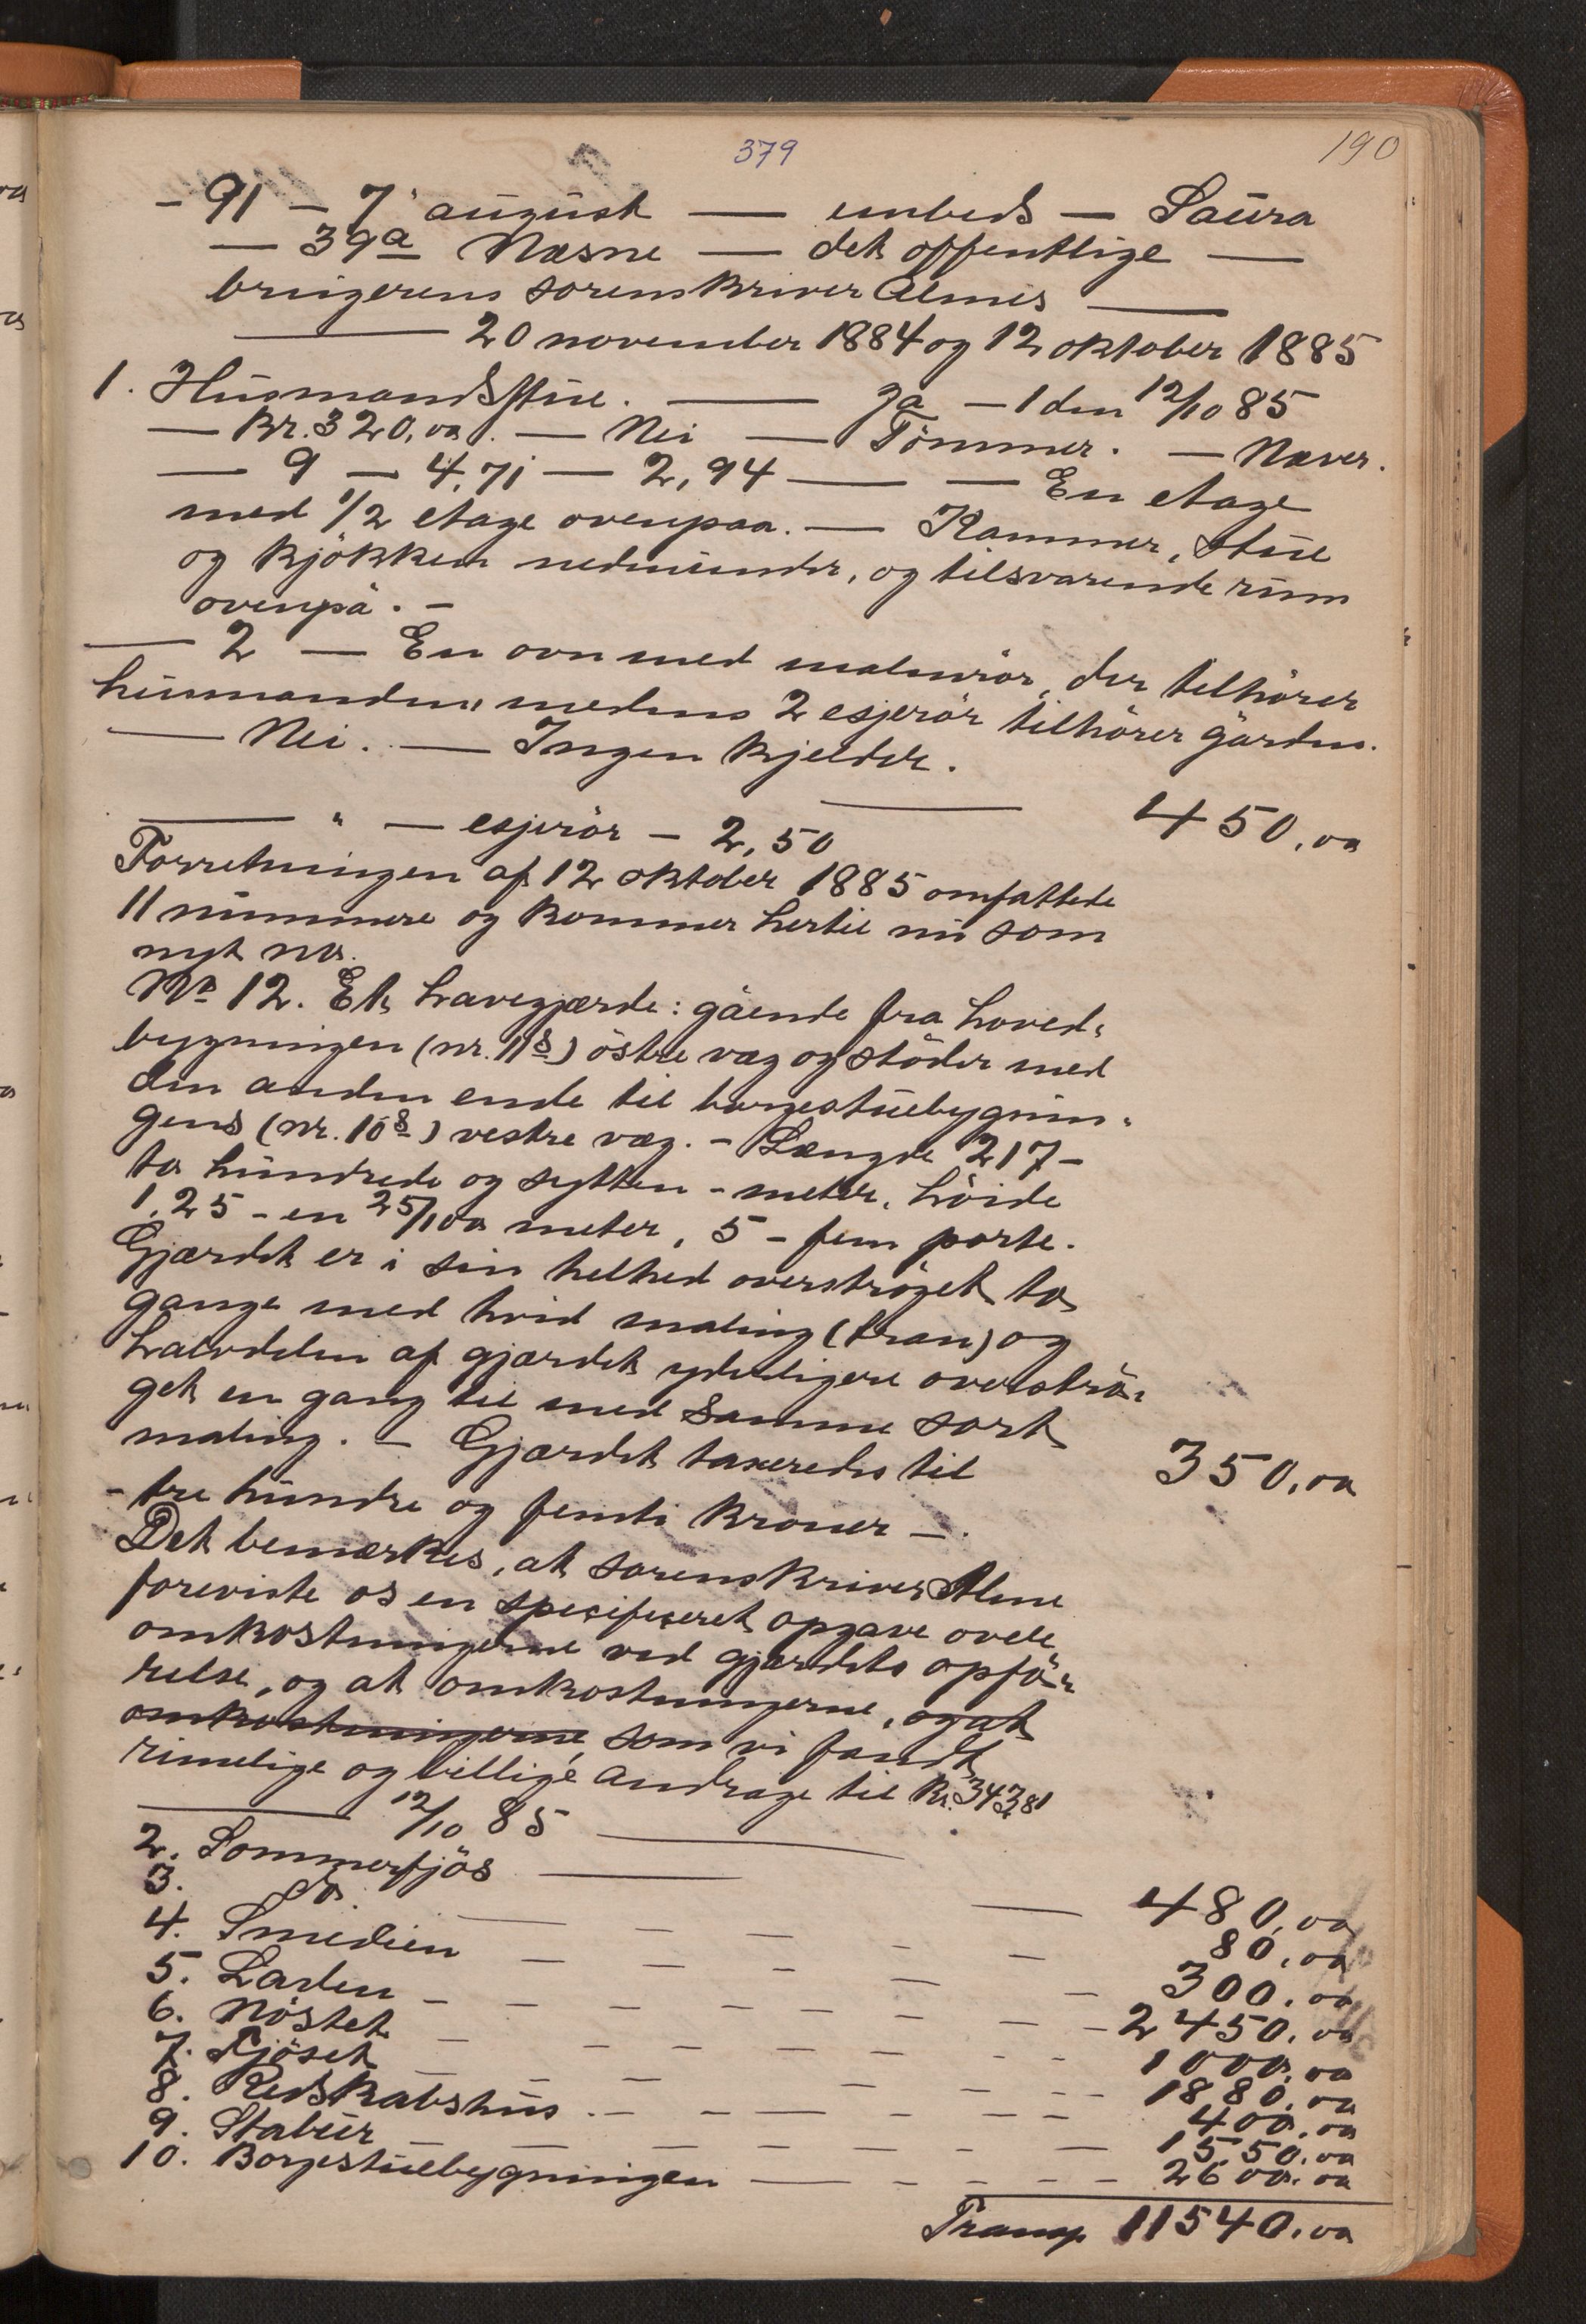 379
190
- 91 - 7 august — embeds — Saura
— 39a Næsne — det offentlige —
brugerens sorenskriver Almes —
— 20 november 1884 og 12 oktober 1885
1. Husmandsstue. — Ja — 1 den 12/10 85
— Kr. 320,oo. — Nei — Tömmer. — Næver.
— 9 — 4,71 — 2,94 — — En etage
med 1/2 etage ovenpaa. — Kammer, stue
og kjökken nedenunder, og tilsvarende rum
ovenpå. -
— 2 — En ovn med malmrör, der tilhörer
husmanden, medens 2 esjerör tilhörer gården.
— Nei. — Ingen kjelder. —
450,oo
— " — esjerör — 2,50
Forretningen af 12 oktober 1885 omfattede
11 nummere og kommer hertil nu som
nyt no.
No 12. Et havegjærde: gående fra hoved-
bygningen (nr. 11 s) östre væg og stöder med
den anden ende til borgestuebygnin-
gens (nr. 10 s) vestre væg. - Længde 217 -
to hundrede og sytten - meter, höide
1,25 - en 25/100 meter, 5 - fem porte.
Gjærdet er i sin helhed overströget to
gange med hvid maling (tran) og
halvdelen af gjærdet yderligere overströ-
get en gang til med samme sort
maling. - Gjærdet taxeredes til
350,oo
- tre hundre og femti kroner -.
Det bemærkes, at sorenskriver Alme
foreviste os en specificeret opgave over
omkostningerne ved gjærdets opfö-
relse, og at omkostningerne, og at
omkostningerne, som vi fandt
rimelige og billige andrage til Kr. 343,81
— 12/10 85 —
2. Sommerfjös — — 480,oo
3. do — — — — — 80,oo
4. Smedien — — — — — 300,oo
5. Laden — — — — — — 2450,oo
6. Nöstet — — — — — 1000,oo
7. Fjöset — — — — — 1880,oo
8. Redskabshus. — — — — — 400,oo
9. Stabur — — — — — — 1550,oo
10. Borgestuebygningen — — — — 2600,oo
Transp 11540,oo